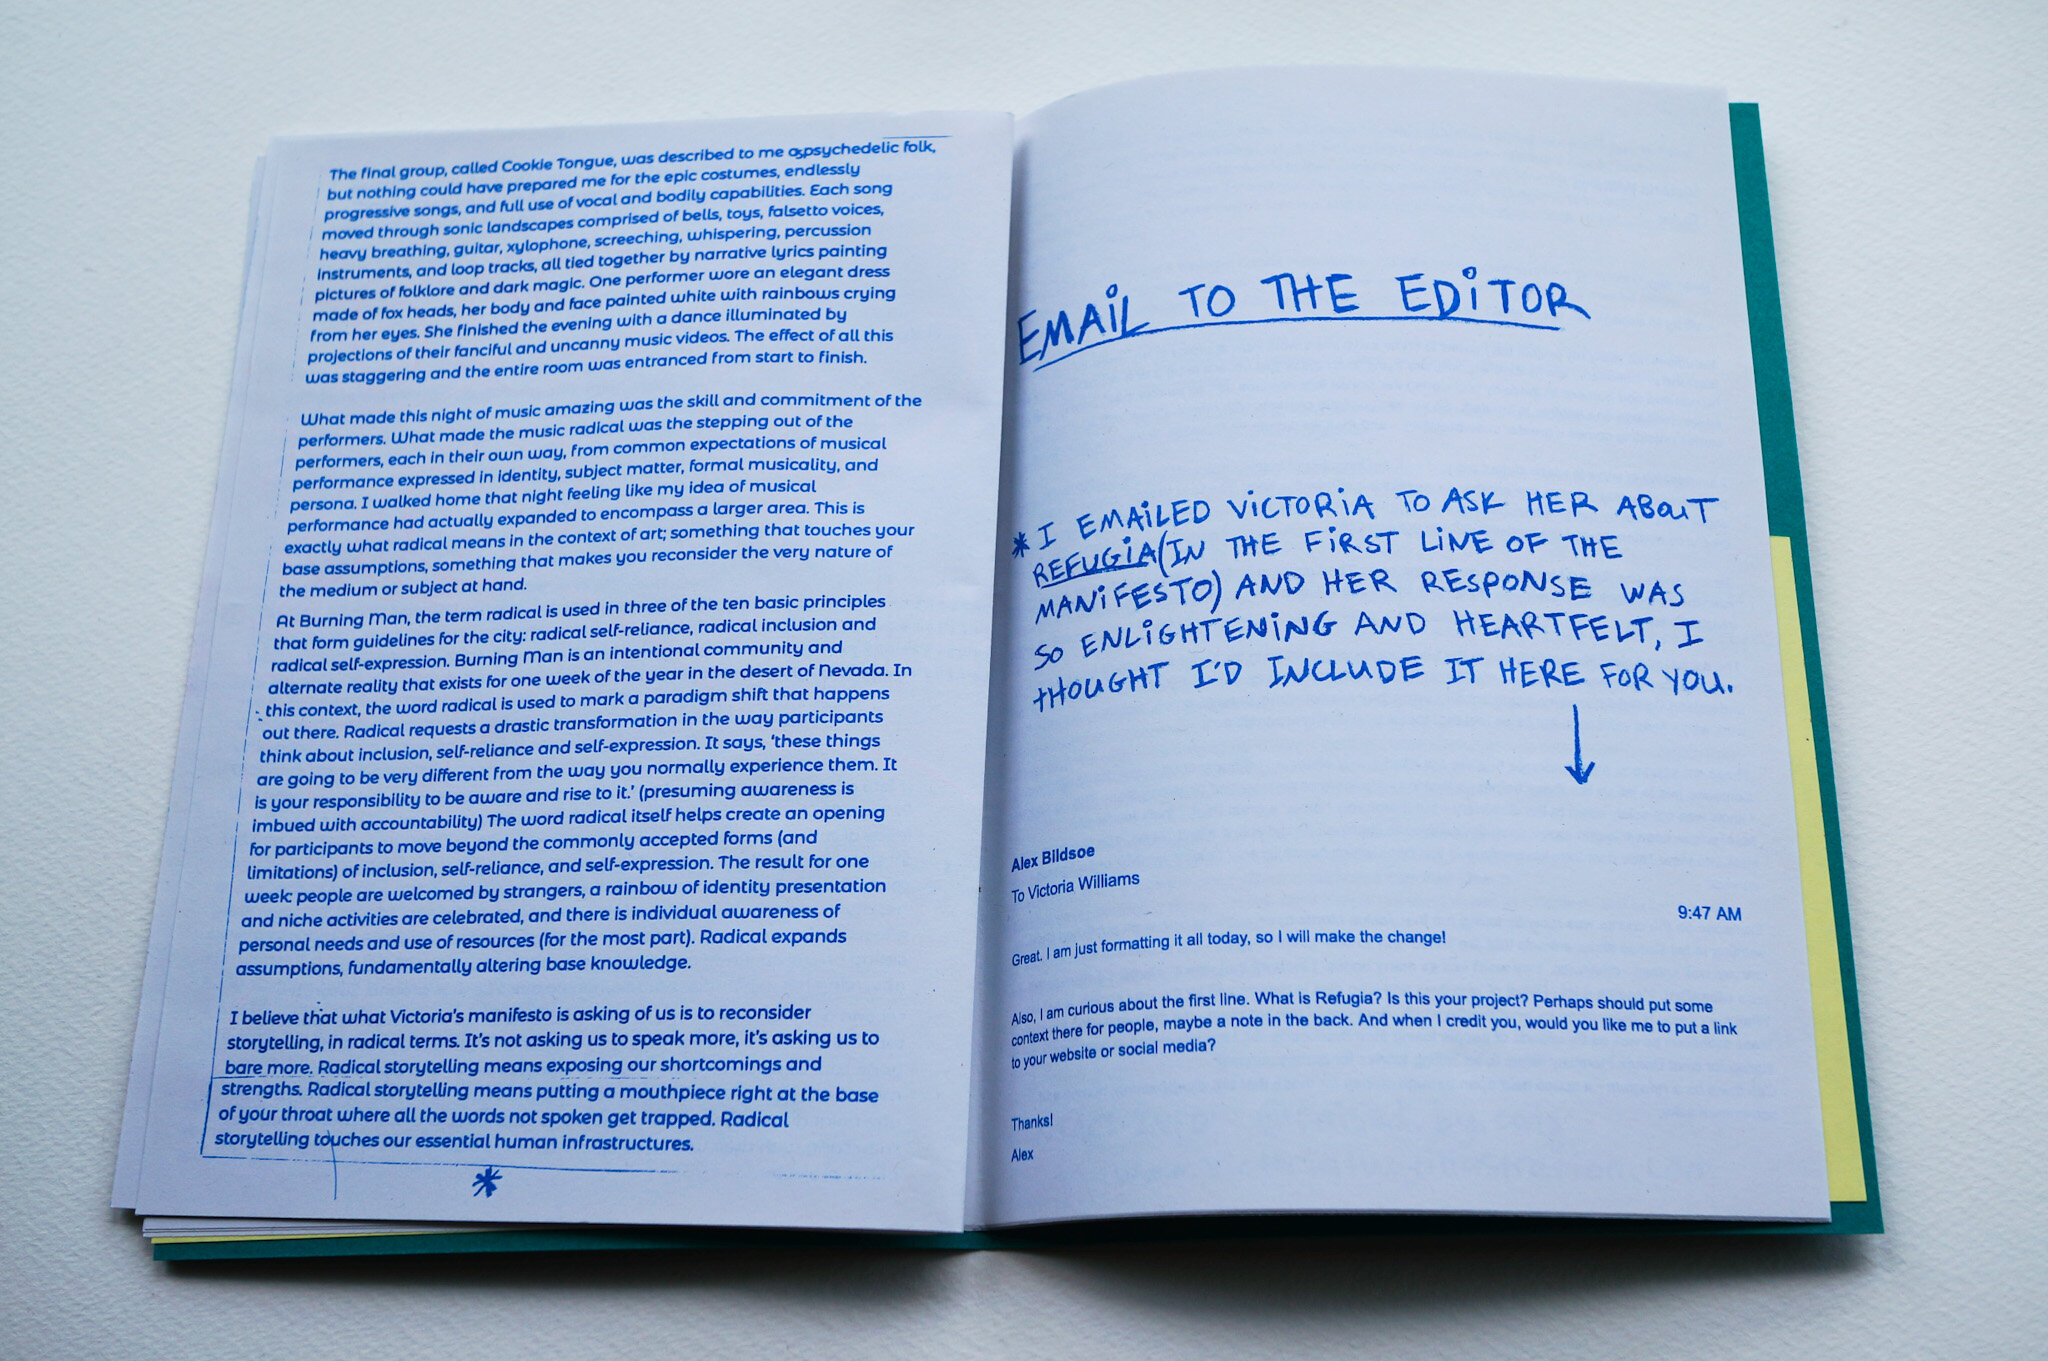 The final group, called Cookie Tongue, was described to me as psychedelic folk,
but nothing could have prepared me for the epic costumes, endlessly
progressive songs, and full use of vocal and bodily capabilities. Each song
moved through sonic landscapes comprised of bells, toys, falsetto voices,
heavy breathing, guitar, xylophone, screeching, whispering, percussion
instruments, and loop tracks, all tied together by narrative lyrics painting
pictures of folklore and dark magic. One performer wore an elegant dress
made of fox heads, her body and face painted white with rainbows crying
from her eyes. She finished the evening with a dance illuminated by
projections of their fanciful and uncanny music videos. The effect of all this
was staggering and the entire room was entranced from start to finish.
What made this night of music amazing was the skill and commitment of the
performers. What made the music radical was the stepping out of the
performers, each in their own way, from common expectations of musical
performance expressed in identity, subject matter, formal musicality, and
persona. I walked home that night feeling like my idea of musical
performance had actually expanded to encompass a larger area. This is
exactly what radical means in the context of art; something that touches your
base assumptions, something that makes you reconsider the very nature of
the medium or subject at hand.
At Burning Man, the term radical is used in three of the ten basic principles
that form guidelines for the city: radical self-reliance, radical inclusion and
radical self-expression. Burning Man is an intentional community and
alternate reality that exists for one week of the year in the desert of Nevada. In
this context, the word radical is used to mark a paradigm shift that happens
out there. Radical requests a drastic transformation in the way participants
think about inclusion, self-reliance and self-expression. It says, ‘these things
are going to be very different from the way you normally experience them. It
is your responsibility to be aware and rise to it.’ (presuming awareness is
imbued with accountability) The word radical itself helps create an opening
for participants to move beyond the commonly accepted forms (and
limitations) of inclusion, self-reliance, and self-expression. The result for one
week: people are welcomed by strangers, a rainbow of identity presentation
and niche activities are celebrated, and there is individual awareness of
personal needs and use of resources (for the most part). Radical expands
assumptions, fundamentally altering base knowledge.
I believe that what Victoria’s manifesto is asking of us is to reconsider
storytelling, in radical terms. It’s not asking us to speak more, it’s asking us to
bare more. Radical storytelling means exposing our shortcomings and
strengths. Radical storytelling means putting a mouthpiece right at the base
of your throat where all the words not spoken get trapped. Radical
storytelling touches our essential human infrastructures.
*
EMAIL TO THE EDITOR
* I EMAILED VICTORIA TO ASK HER ABOUT
REFUGIA (IN THE FIRST LINE OF THE
MANIFESTO) AND HER RESPONSE WAS
SO ENLIGHTENING AND HEARTFELT, I
THOUGHT I'D INCLUDE IT HERE FOR YOU.
Alex Bildsoe
To Victoria Williams
9:47 AM
Great. I am just formatting it all today, so I will make the change!
Also, I am curious about the first line. What is Refugia? Is this your project? Perhaps should put some
context there for people, maybe a note in the back. And when I credit you, would you like me to put a link
to your website or social media?
Thanks!
Alex